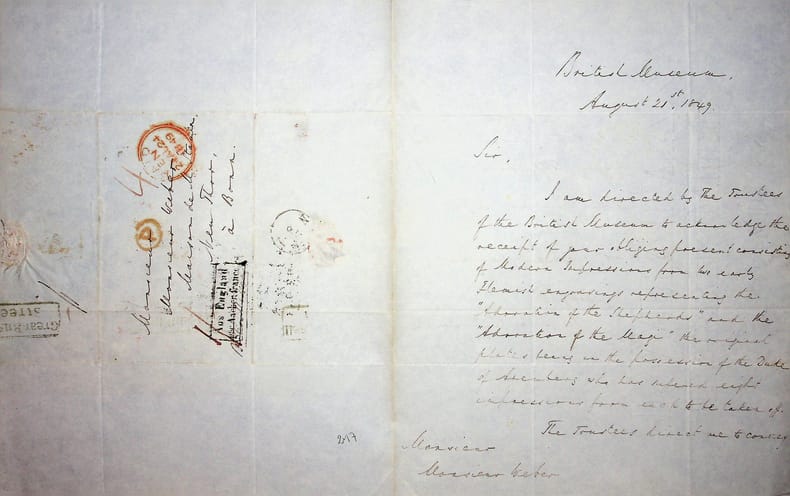 British Museum,
August 21st, 1849.
Sir,
I am directed by the Trustees
of the British Museum to acknowledge the
receipt of your obliging present consisting
of Modern Impressions from two early
Flemish engravings representing the
"Adoration of the Shepherds" and the
"Adoration of the Magi" the original
plates being in the possession of the Duke
of Arenberg who has ordered eight
impressions from each to be taken off.
The Trustees direct me to convey
Monsieur
Monsieur Weber
Monsieur
Monsieur Weber
Maison de
Neu Thor,
à Bonn.
Aus England
P
4
1849
Great Rus
Stree
2017